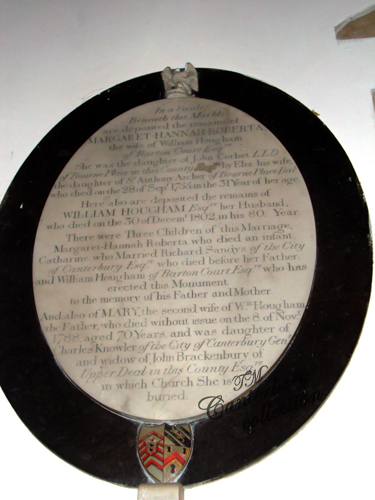 In a Vault
Beneath this Marble
are deposited the remains of
MARGARET-HANNAH-ROBERTA,
the wife of William Hougham
of Barton Court Esqr.
She was the daughter of John Corbet L.L.D.
of Bourne Place in this County by Eliz. his wife,
the daughter of Sr. Anthony Aucher of Bourne Place Bart.
who died on the 28 of Sepr. 1755 in the 31 Year of her age.
Here also are deposited the remains of
WILLIAM HOUGHAM Esqr. her Husband,
who died on the 30 of Decemr. 1802, in his 80. Year.
There were Three Children of this Marriage,
Margaret-Hannah Roberta, who died an infant,
Catharine who Married Richard Sandys of the City
of Canterbury Esqr. who died before her Father
and William Hougham of Barton Court Esqr. who has
erected this Monument
to the memory of his Father and Mother.
And also of MARY, the second wife of Wm. Hougham
the Father, who died without issue on the 8. of Novr.
1788, aged 70 Years, and was daughter of
Charles Knowler of the City of Canterbury Gent.
and widow of John Brackenbury of
Upper Deal in this County Esqr.
in which Church She is
buried.
TM